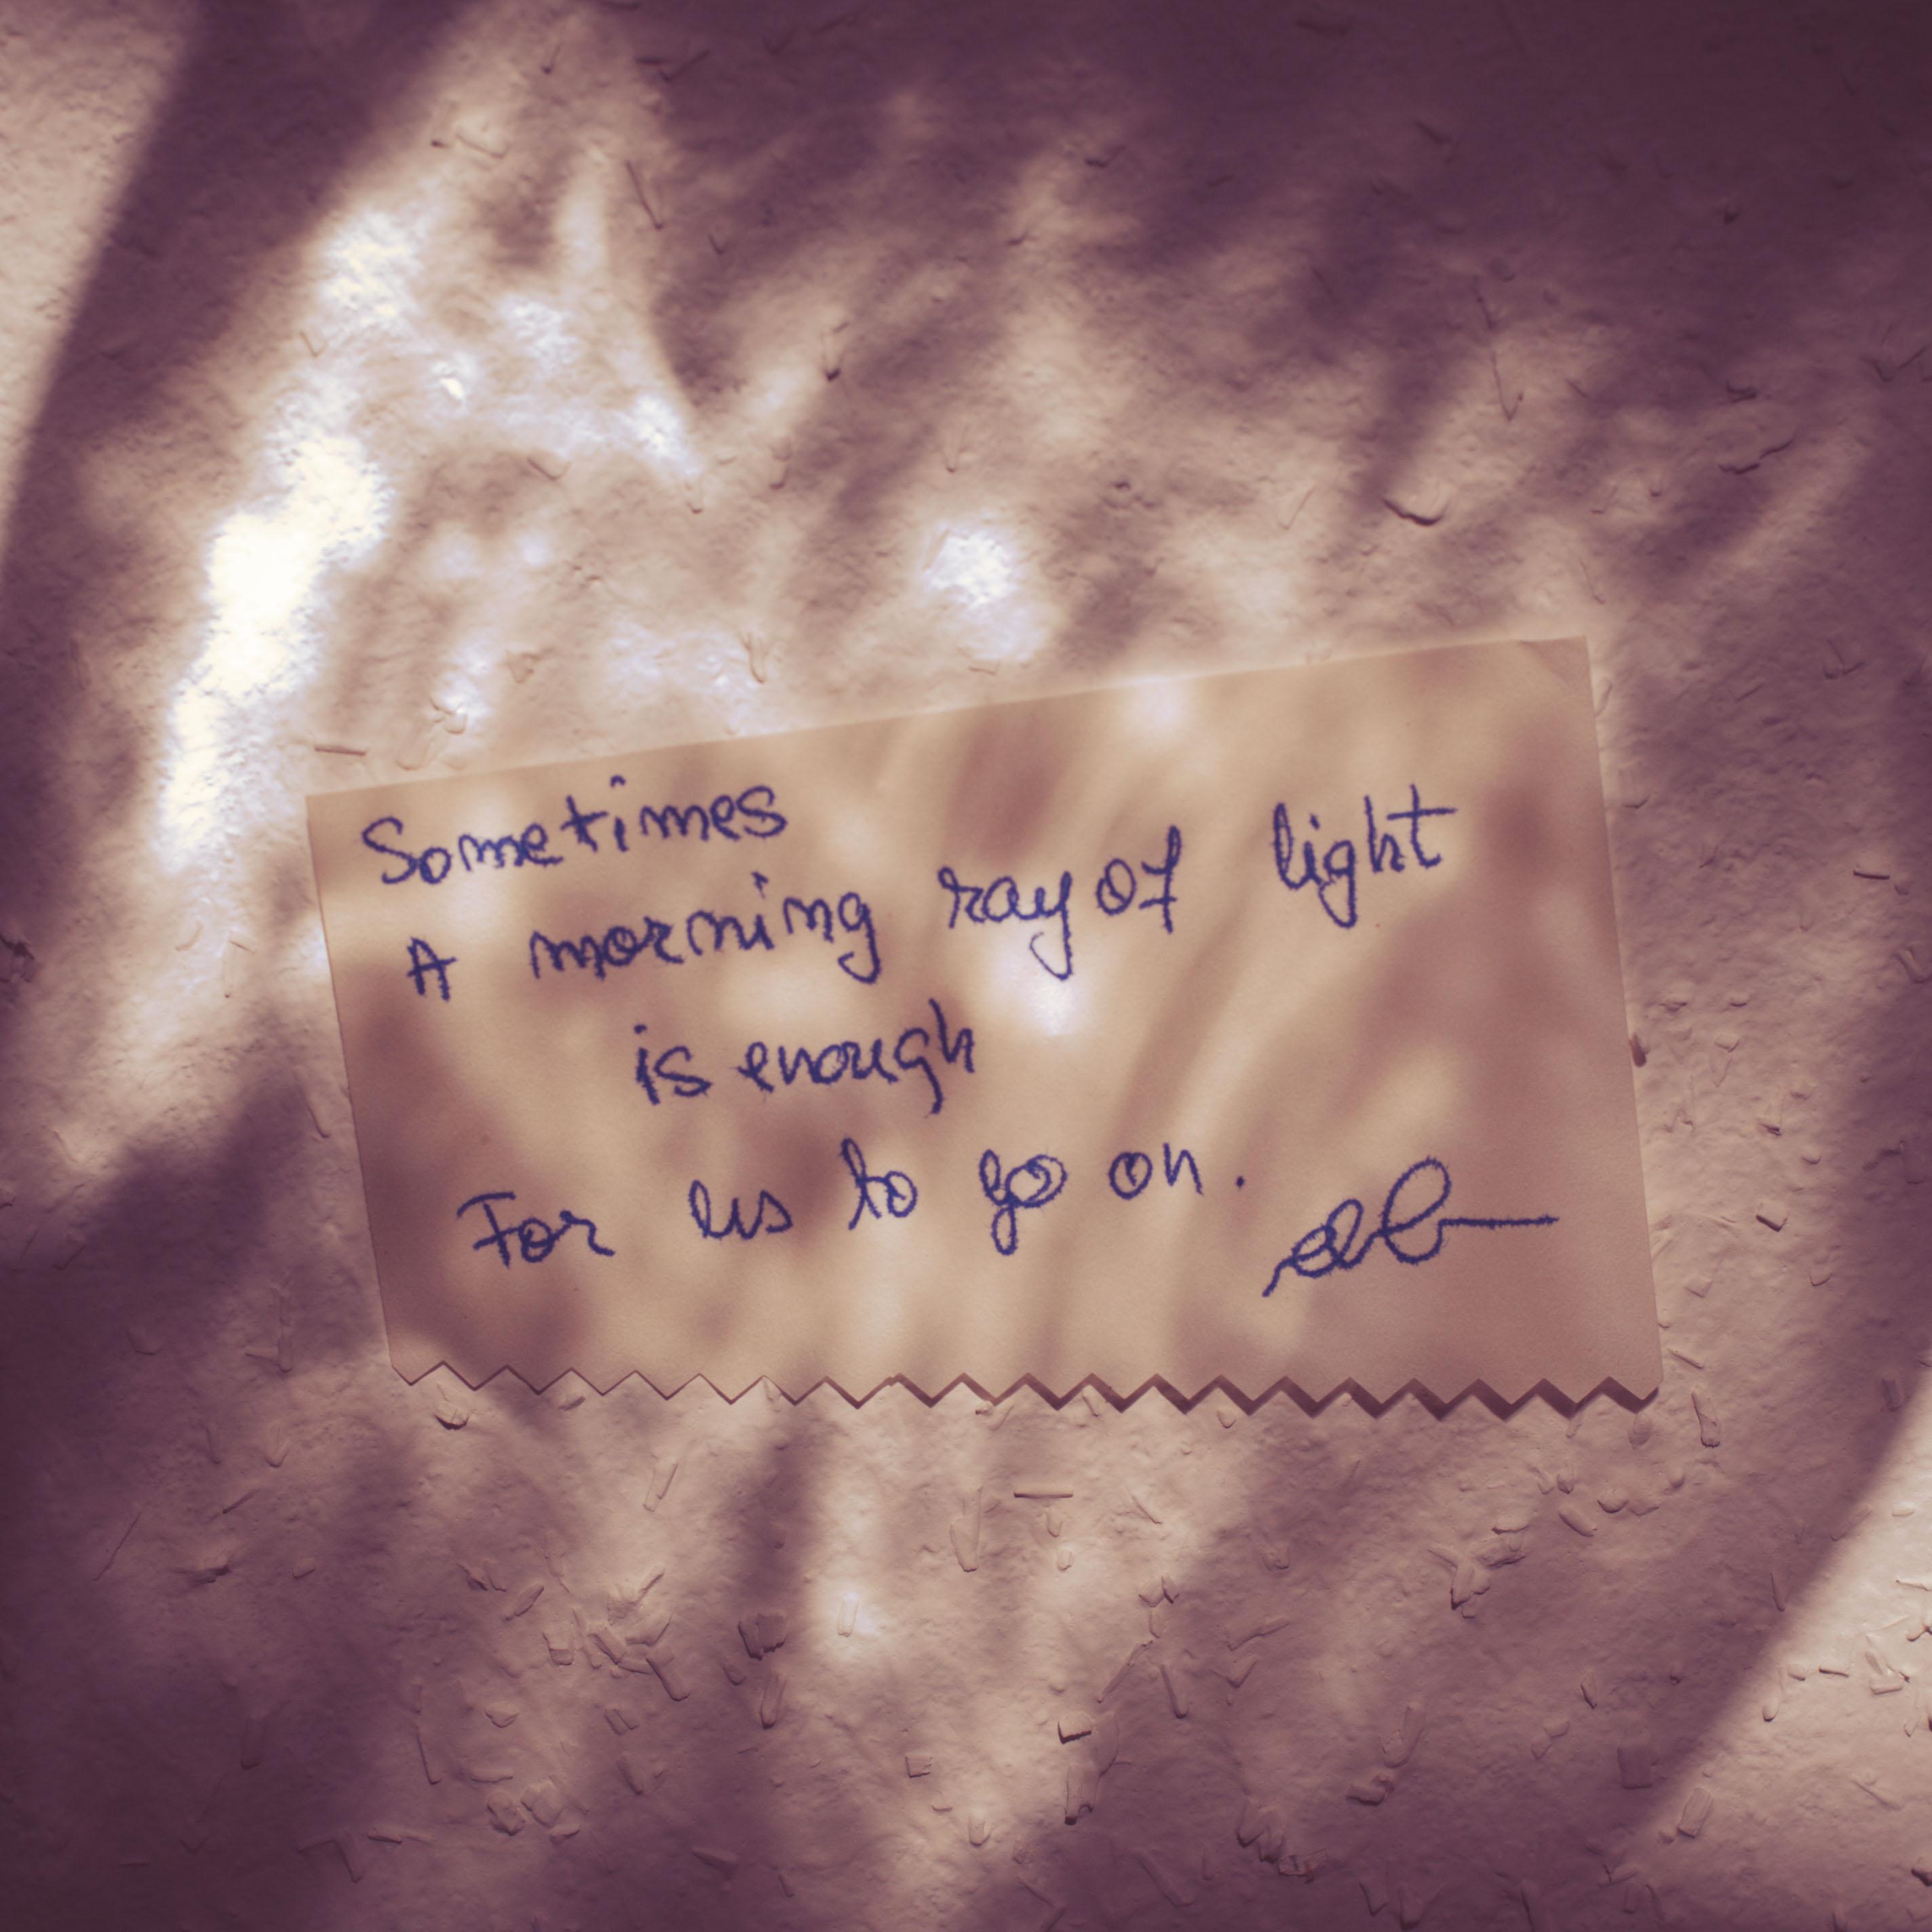 Sometimes
A morning ray of light
is enough
For us to go on.